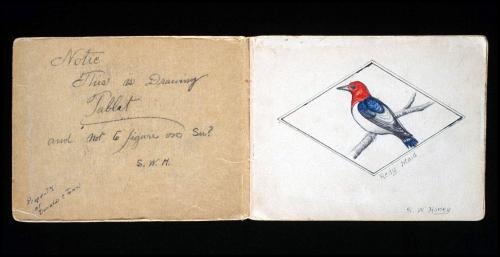 Notic
This is Drawing
Tablet
and not to figure on Sir?
S. W. H.
Property
of
Redy Maid
S. W. Honey